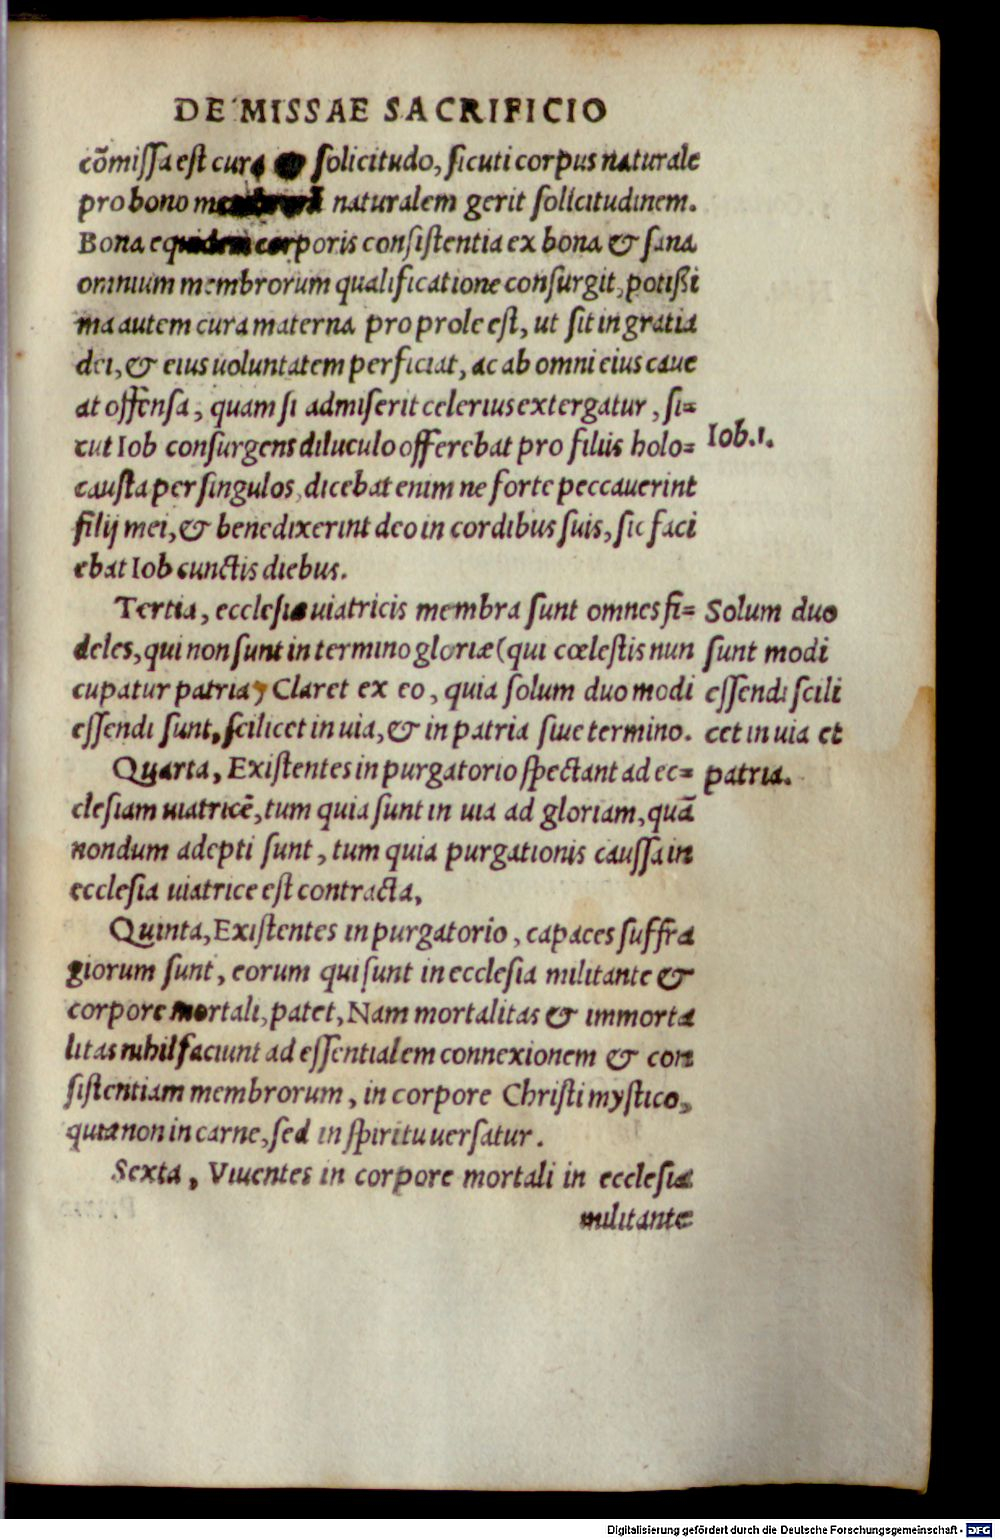 DE MISSAE SACRIFICIO
cõmissa est cura solicitudo, sicuti corpus naturale
pro bono naturalem gerit solicitudinem.
Bona equidem corporis consistentia ex bona & sana
omnium membrorum qualificatione consurgit, potißi
ma autem cura materna pro prole est, ut sit in gratia
dei, & eius uoluntatem perficiat, ac ab omni eius caue
at offensa, quam si admiserit celerius extergatur, si=
cut Iob consurgens diluculo offerebat pro filiis holo=
causta per singulos, dicebat enim ne forte peccauerint
filij mei, & benedixerint deo in cordibus suis, sic faci
ebat Iob cunctis diebus.
Iob.1.
Tertia, ecclesiæ uiatricis membra sunt omnes fi=
deles, qui non sunt in termino gloriæ (qui cœlestis nun
cupatur patria) Claret ex eo, quia solum duo modi
essendi sunt, scilicet in uia, & in patria siue termino.
Solum duo
sunt modi
essendi scili
cet in uia et
patria.
Quarta, Existentes in purgatorio spectant ad ec=
clesiam uiatricẽ, tum quia sunt in uia ad gloriam, quã
nondum adepti sunt, tum quia purgationis caussa in
ecclesia uiatrice est contracta,
Quinta, Existentes in purgatorio, capaces suffra
giorum sunt, eorum qui sunt in ecclesia militante &
corpore mortali, patet, Nam mortalitas & immorta
litas nihil faciunt ad essentialem connexionem & con
sistentiam membrorum, in corpore Christi mystico,
quia non in carne, sed in spiritu uersatur.
Sexta, Viuentes in corpore mortali in ecclesia
militante
Digitalisierung gefördert durch die Deutsche Forschungsgemeinschaft - DFG